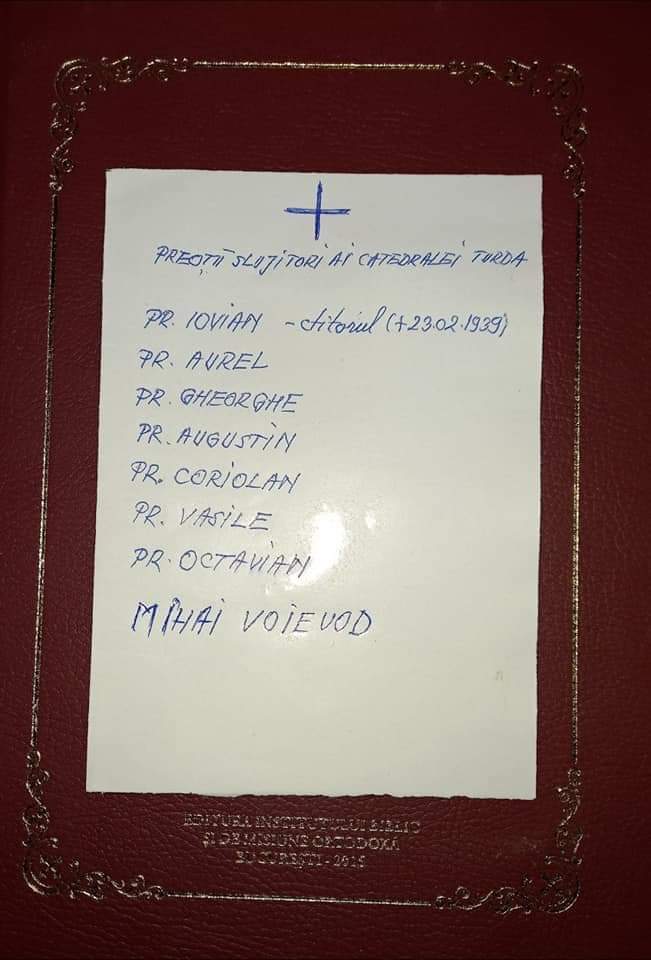 PREOȚII SLUJITORI AI CATEDRALEI TURDA
PR. IOVIAN - ctitorul (+23.02.1939)
PR. AUREL
PR. GHEORGHE
PR. AUGUSTIN
PR. CORIOLAN
PR. VASILE
PR. OCTAVIAN
MIHAI VOIEVOD
EDITURA INSTITUTULUI BIBLIC
ȘI DE MISIUNE ORTODOXĂ
BUCUREȘTI - 2015